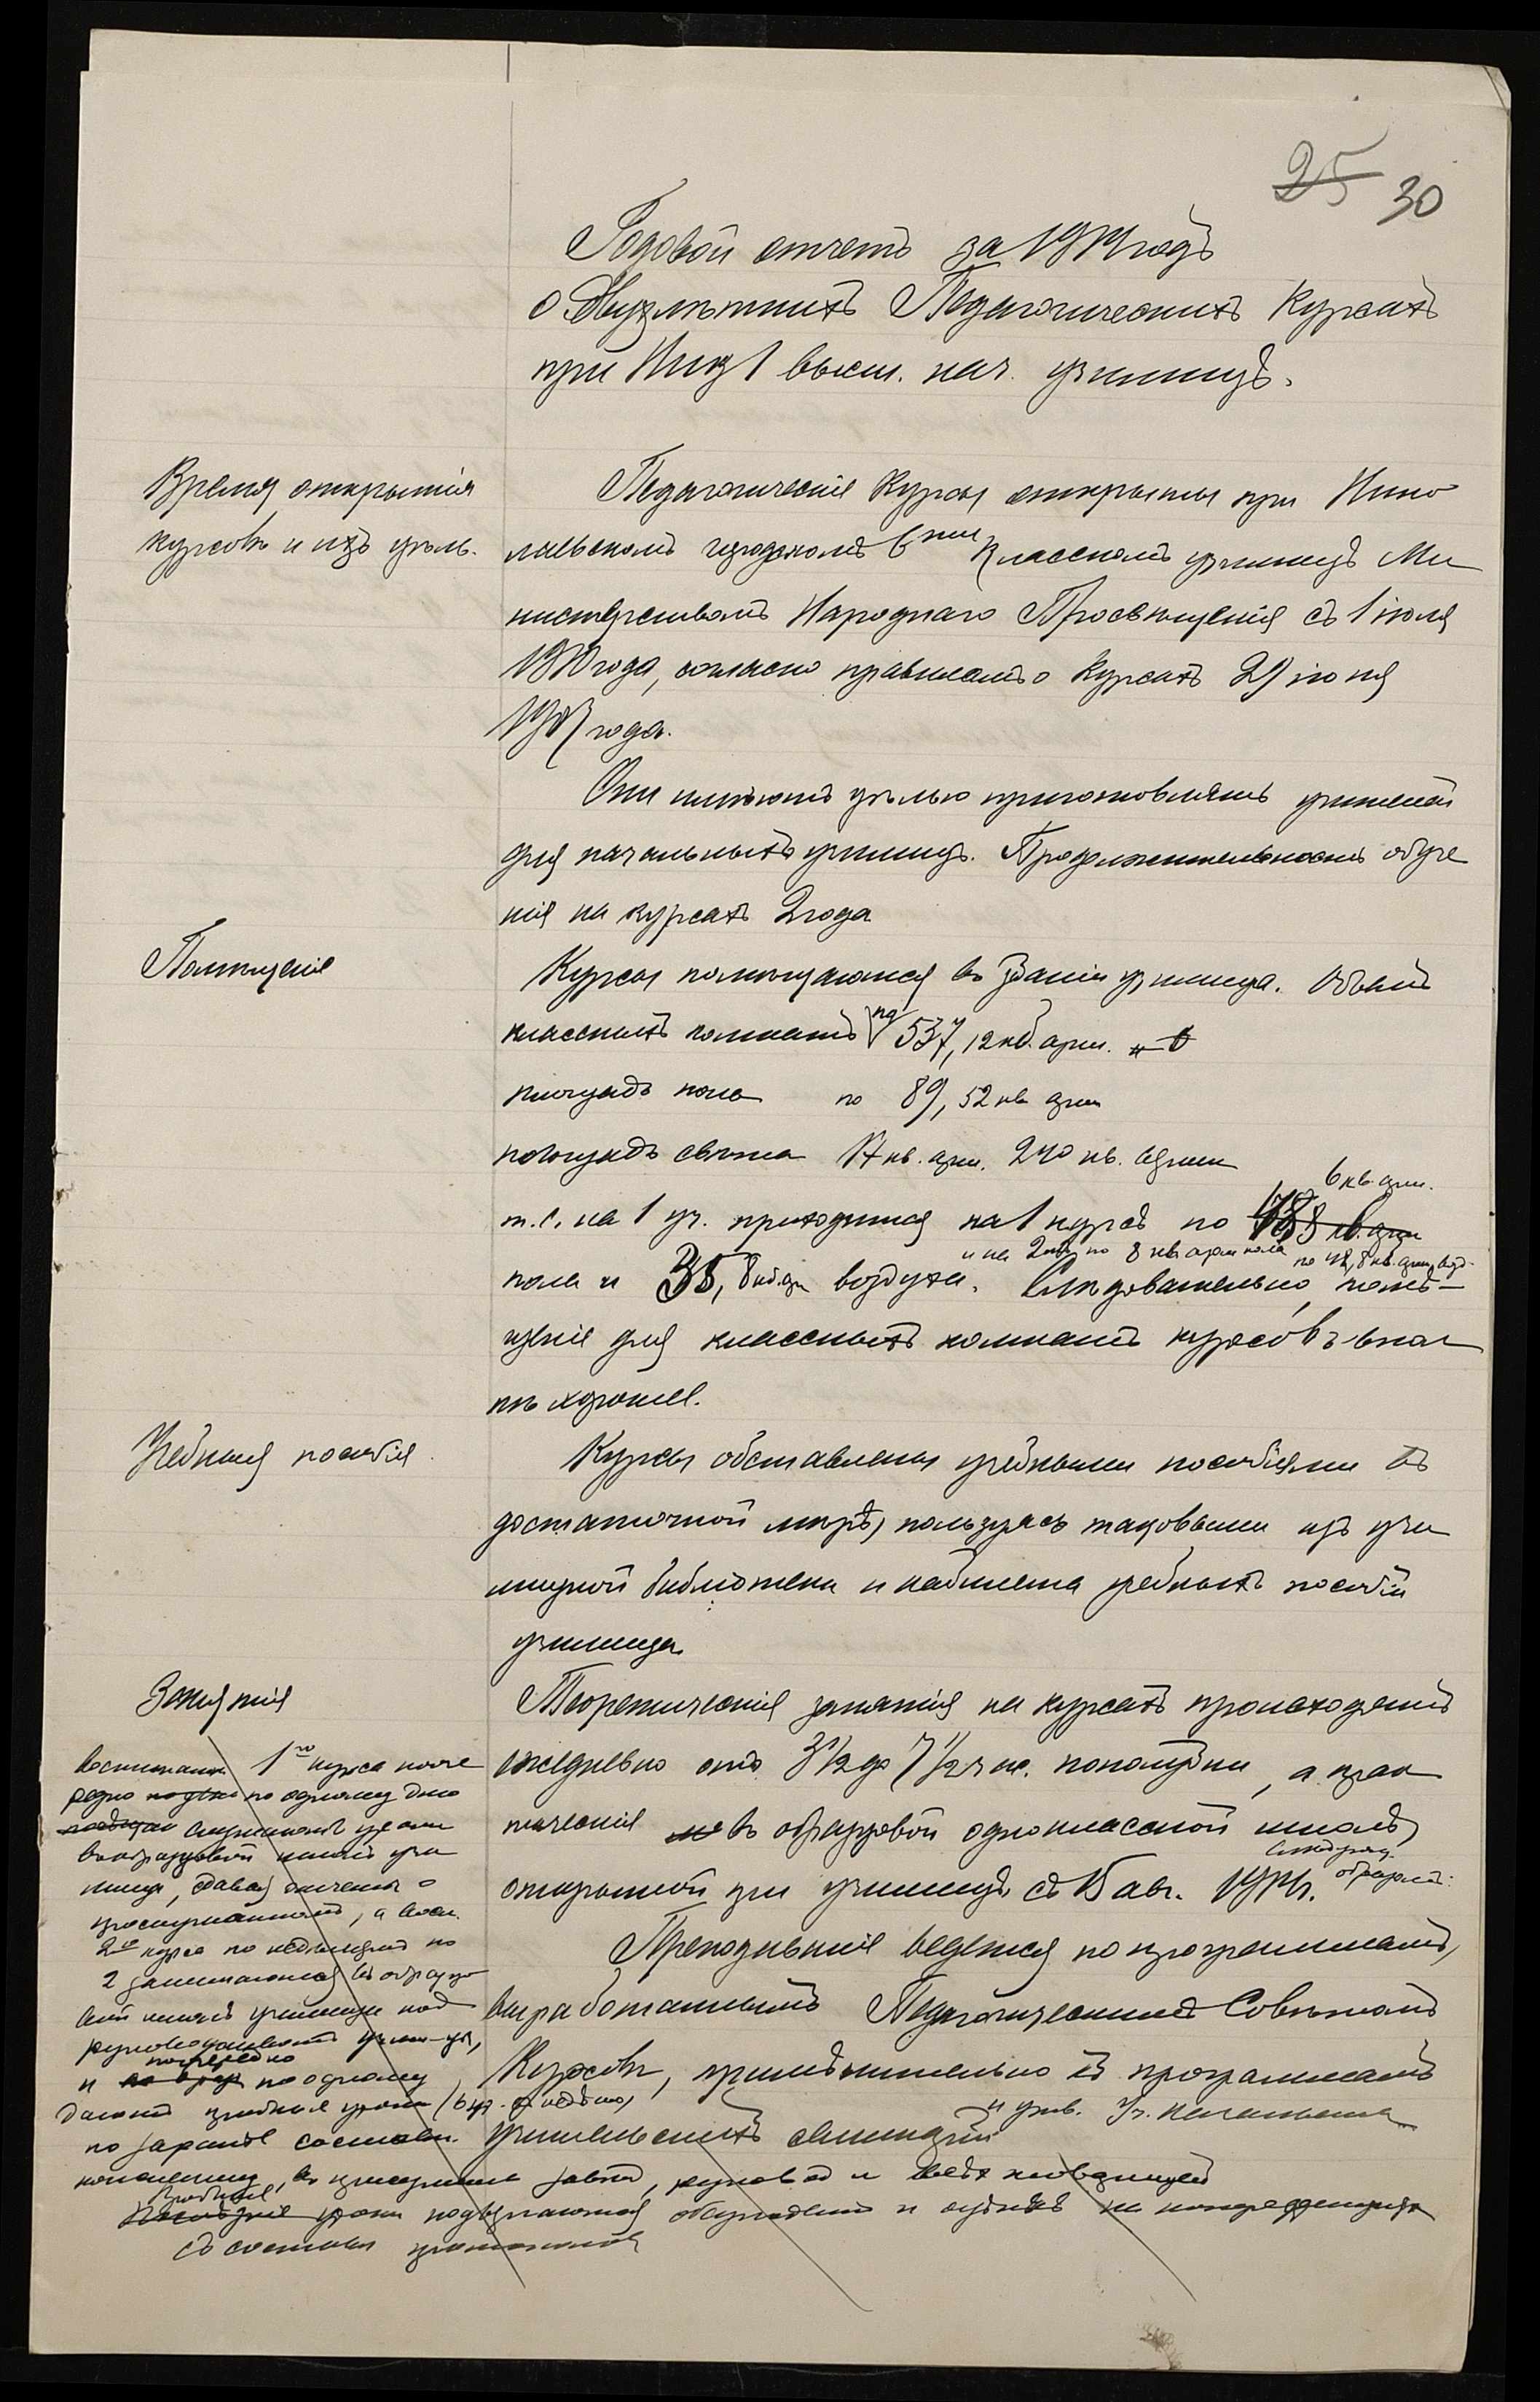 25 30
Годовой отчетъ за 1914 годъ
о Двухлѣтнихъ Педагогическихъ Курсахъ
при Ник 1 высш. нач. училищѣ.
Время открытія
курсовъ и ихъ цѣль.
Педагогическіе Курсы открыты при Нико
лаевскомъ городскомъ 6 классномъ училищѣ Ми
нистерствомъ Народнаго Просвѣщенія съ 1 іюля
1910 года, согласно правиламъ о Курсахъ 29 іюня
1907 года.
Они имѣютъ цѣлью приготовлять учителей
для начальныхъ училищъ. Продолжительность обуче
нія на курсахъ 2 года
Помѣщеніе
Курсы помѣщаются въ зданіи училища. Объемъ
классныхъ комнатъ по 537,12 кб. арш. и
площадь пола по 89,52 кв арш
площадь свѣта 17 кв. арш. 240 кв. верш
6 кв. арш.
т.е. на 1 уч. приходится на 1 курсѣ по
и на 2 по 8 кв арш пола по 48,8 кв. арш возд.
пола и 35,8 кб. ар воздуха. Слѣдовательно, помѣ-
щеніе для классныхъ комнатъ курсовъ впол
нѣ хорошее.
Учебныя пособія.
Курсы обставлены учебными пособіями въ
достаточной мѣрѣ, пользуясь таковыми изъ учи
лищной библіотеки и кабинета учебныхъ пособій
училища
Занятія
Теоретическія занятія на курсахъ происходятъ
ежедневно отъ 3 1/2 до 7 1/2 час. пополудни, а прак
тическія въ образцовой одноклассной школѣ,
открытой при училищѣ съ 15 авг.
Преподаваніе ведется по программамъ,
выработаннымъ Педагогическимъ Совѣтомъ
Курсовъ, примѣнительно къ программамъ
учительскихъ семинарій
и утв. Уч. Начальства
1го курса пооче
редно по одному дню
слушаютъ уроки
въ образцовой школѣ учи
лища, давая отчеты о
прослушанномъ, а восп.
2го курса по недѣльно по
2 занимаются въ образцо
вой школѣ училища подъ
руководствомъ учит-ля,
и поочередно по одному
даютъ пробные уроки
по заранѣе составл.
конспекту, въ присутствіи
Пробные уроки подвергаются обсужденію и оцѣнкѣ на конференціяхъ